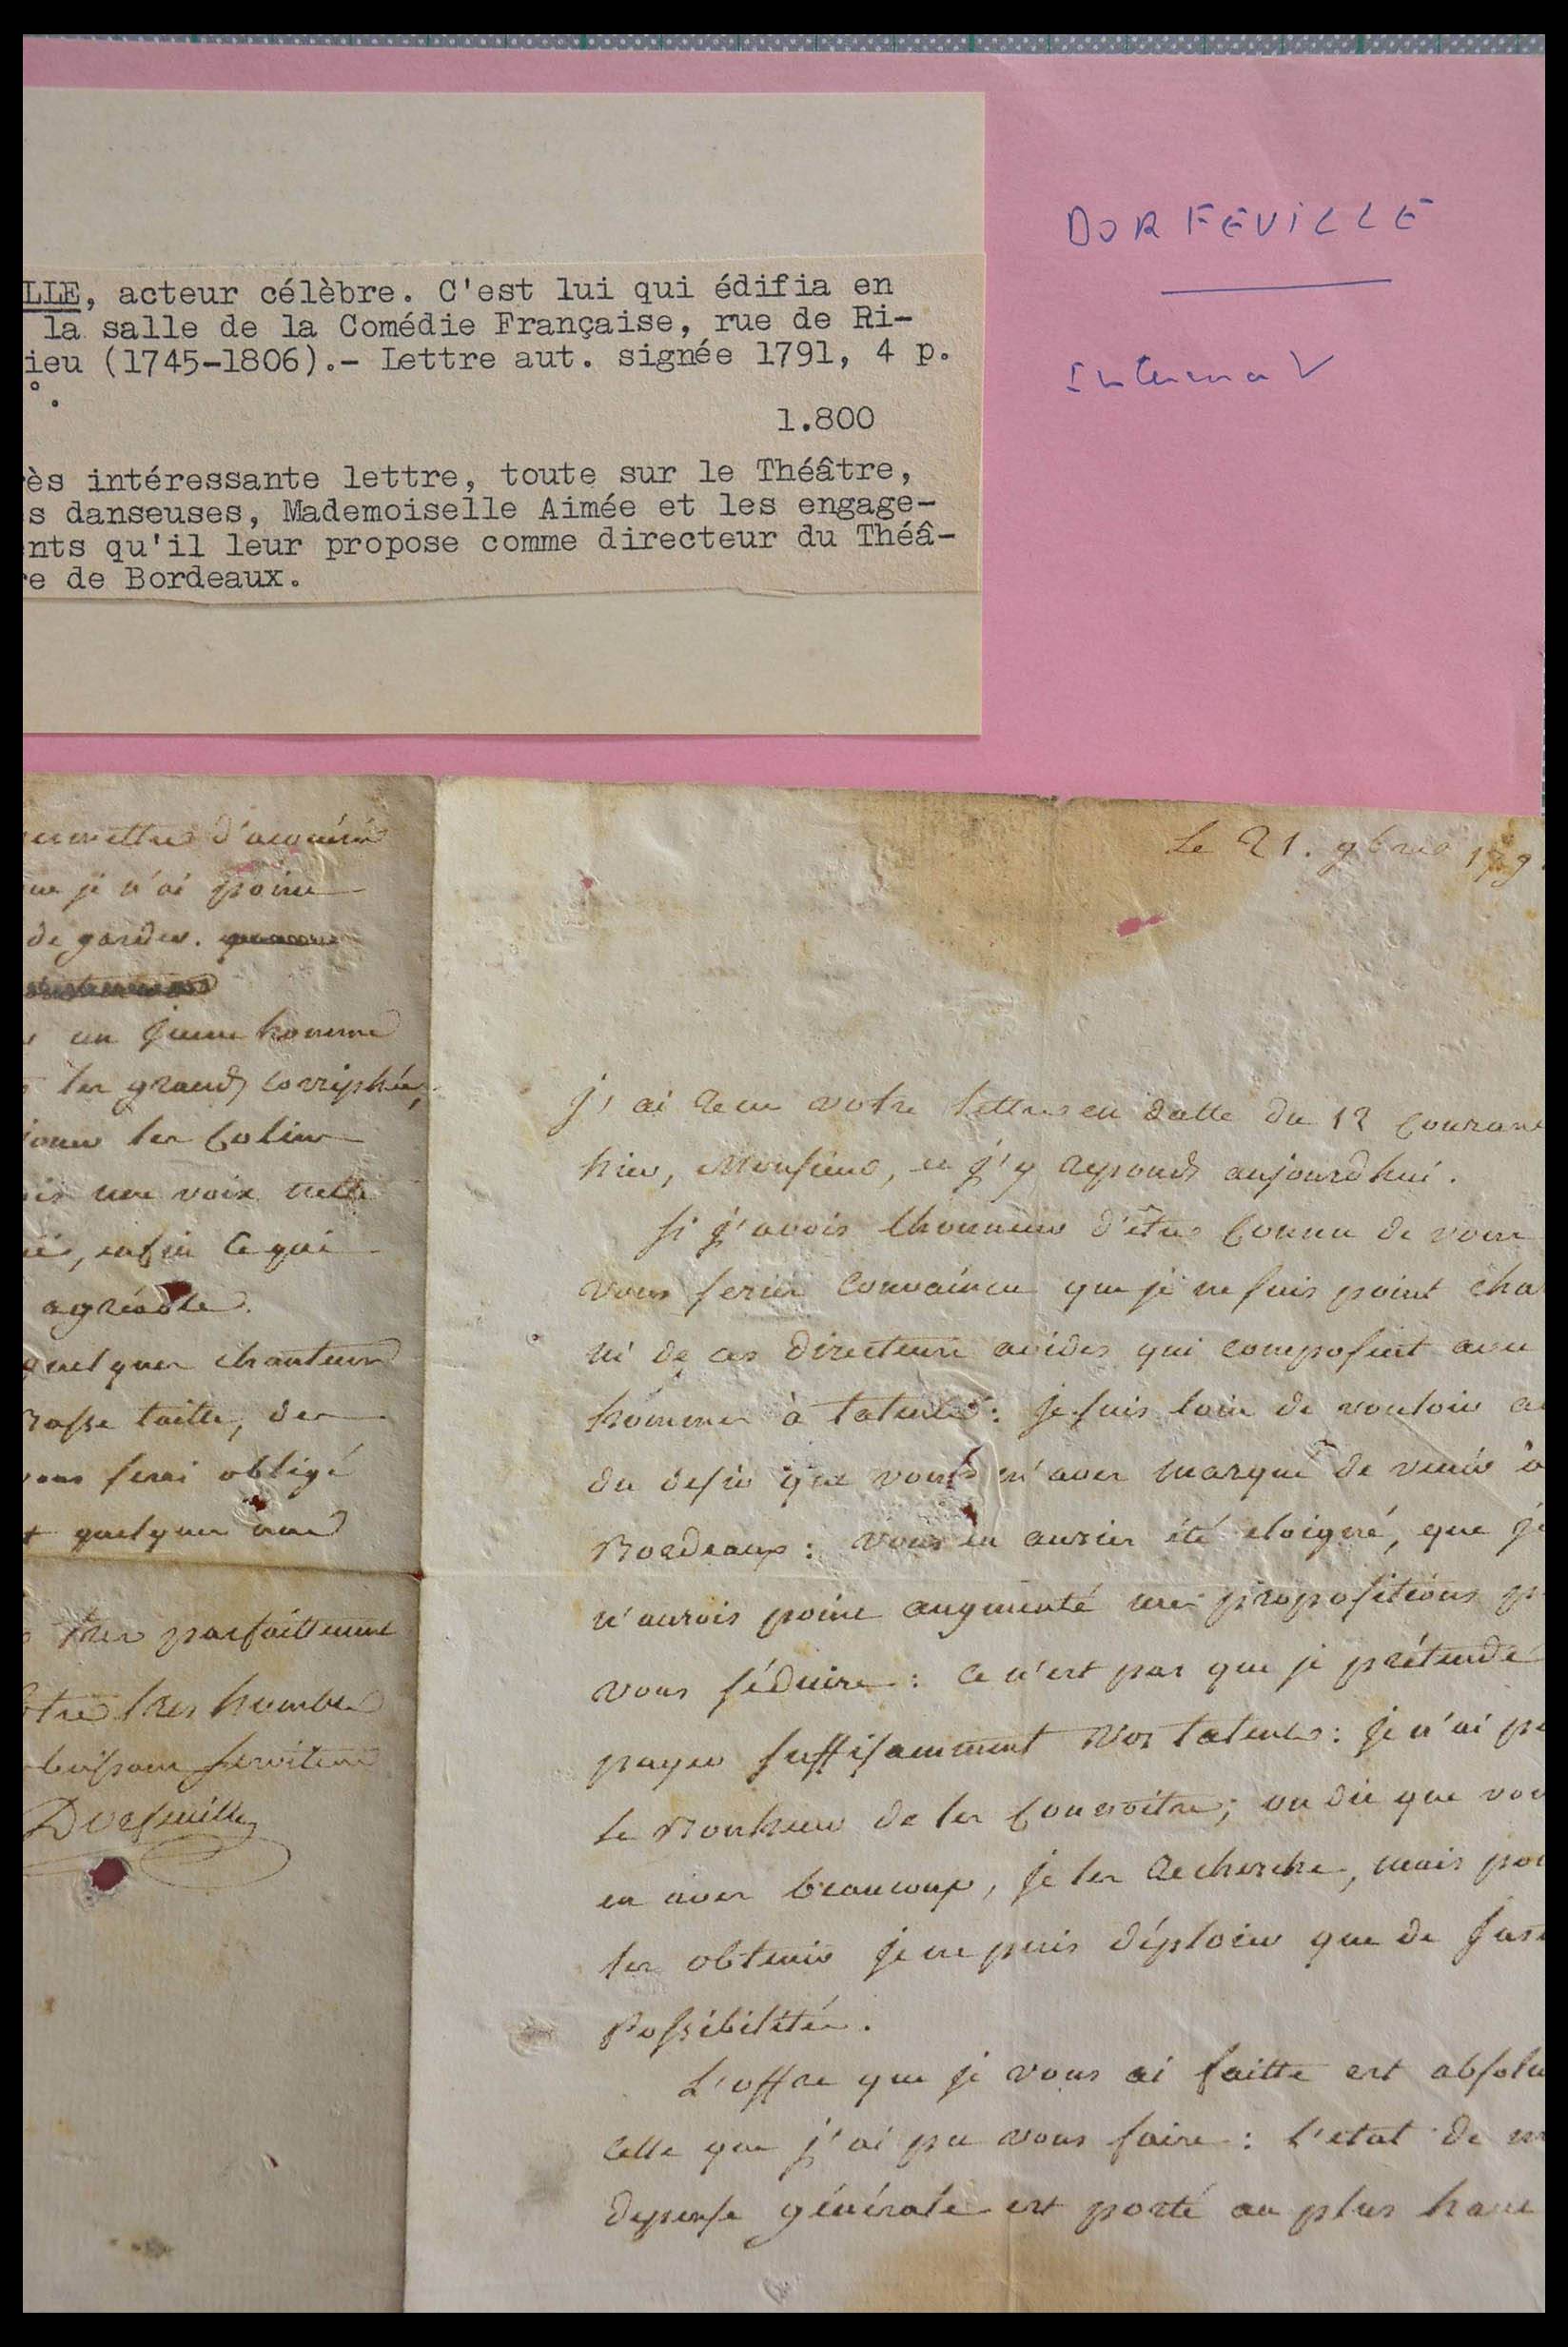 LLE, acteur célèbre. C'est lui qui édifia en
la salle de la Comédie Française, rue de Ri-
ieu (1745-1806).- Lettre aut. signée 1791, 4 p.
°.
1.800
ès intéressante lettre, toute sur le Théâtre,
s danseuses, Mademoiselle Aimée et les engage-
nts qu'il leur propose comme directeur du Théâ-
re de Bordeaux.
DORFEUILLE
d'acquérir
que je n'ai point
de garder.
un jeune homme
les grands corriphés,
jouer les Colins
une voix nette
enfin ce qui
agréable.
quelques chanteurs
basse taille, des
vous serai obligé
quelques uns
très parfaittement
très humble
serviteur
Dorfeuille
Le 21. 9bre 179
j'ai reçu votre lettre en datte du 12 courant
hier, Monsieur, et j'y reponds aujourdhui.
Si j'avois lhonneur d'être connu de vous
vous seriés convaincu que je ne suis point cha
ni de ces directeurs avides qui composent avec
hommes à talents : je suis loin de vouloir a
du desir que vous m'avez marqué de venir à
Bordeaux : vous en auriés été eloigné, que je
n'aurois point augmenté mes propositions p
vous séduire : ce n'est pas que je prétende
payer suffisamment vos talents : je n'ai p
le Bonheur de les connoitre ; on dit que vou
en avez beaucoup, je les recherche, mais pou
les obtenir je ne puis déploier que de Just
Possibilités.
L'offre que je vous ai faitte est absolu
celle que j'ai pu vous faire : l'etat de m
depense générale est porté au plus haut